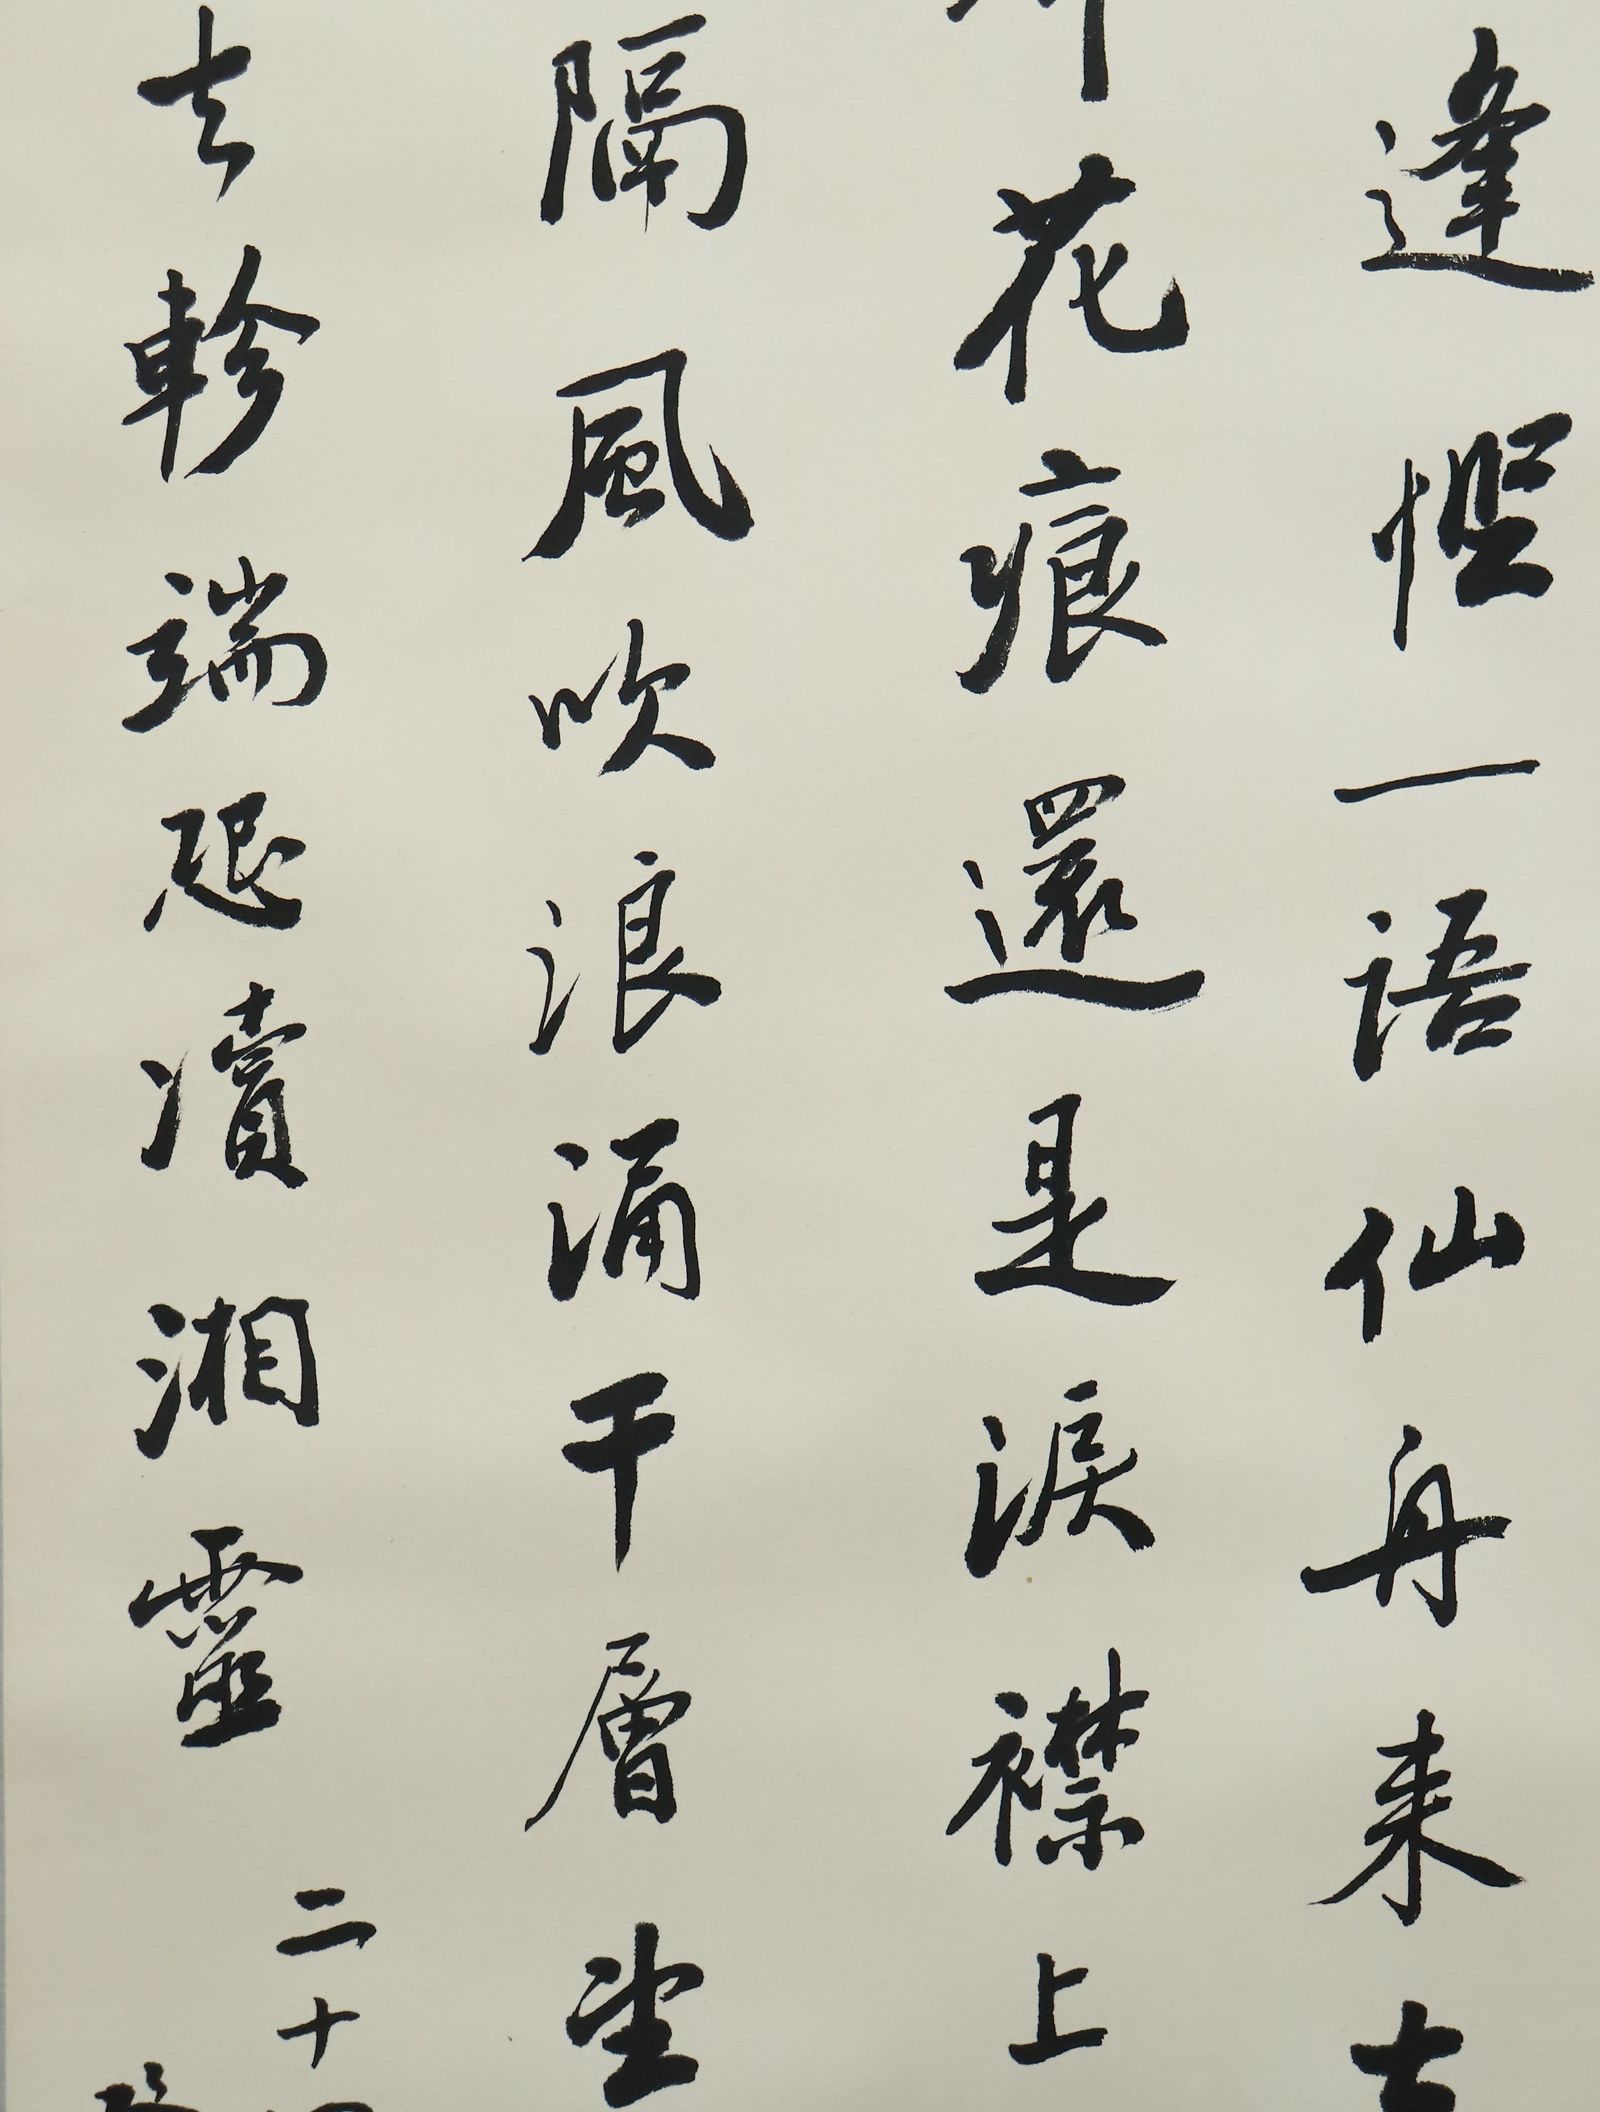 逢慳一語仙舟来去
花痕還是淚襟上
隔風吹浪涌千層望
去軫端恐瀆湘靈
二十